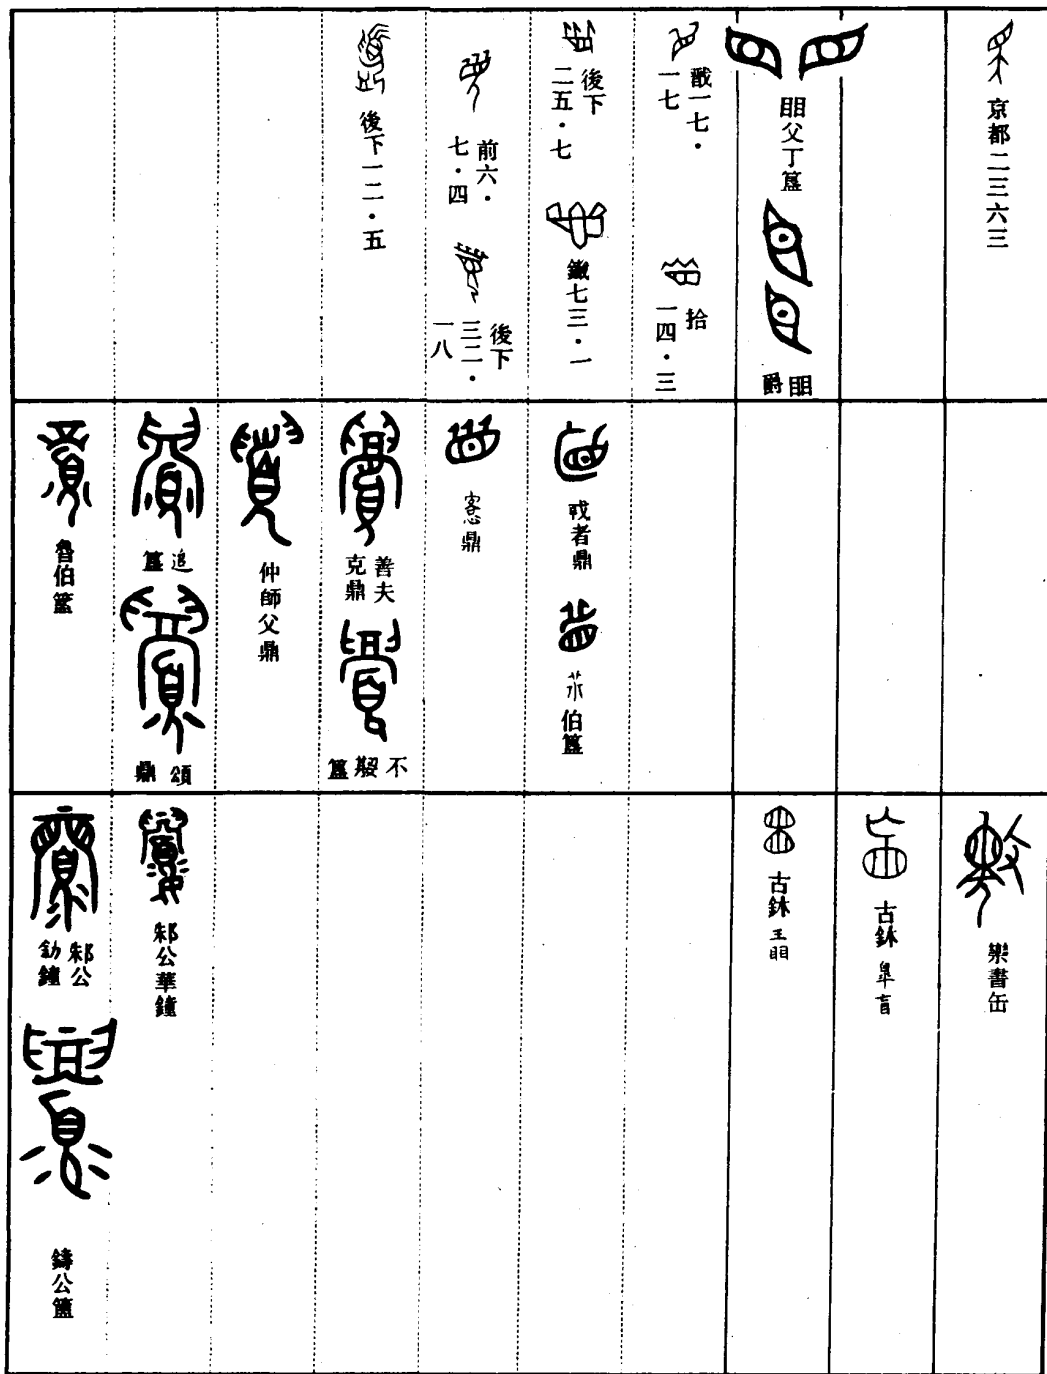 京都二三六三
䀠父丁簋
䀠爵
戬一七·一七
拾一四·三
後下二五·七
鐵七三·一
前六·七·四
後下三二·一八
後下一二·五
或者鼎
伯簋
鼎
善夫克鼎
不𡢁簋
仲師父鼎
追簋
頌鼎
魯伯簋
欒書缶
古鉨
古鉨 王䀠
邾公華鐘
邾公釛鐘
鑄公簠